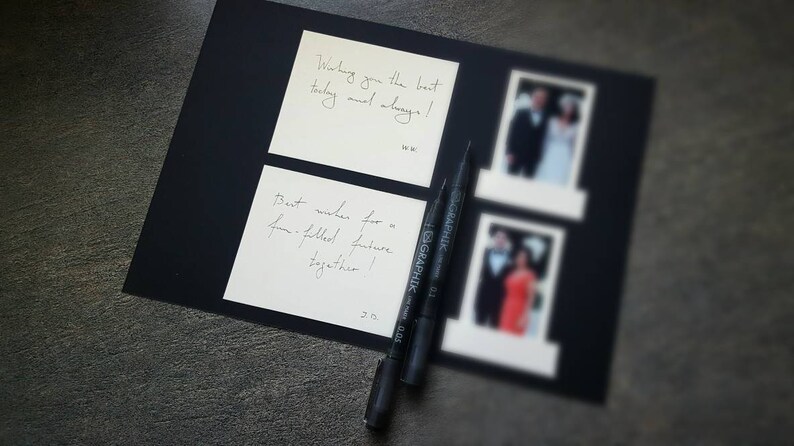 Wishing you the best
today and always!
W.W.
Best wishes for a
fun-filled future
together!
J.D.
GRAPHIK LINE MAKER 0.05
GRAPHIK LINE MAKER 0.1